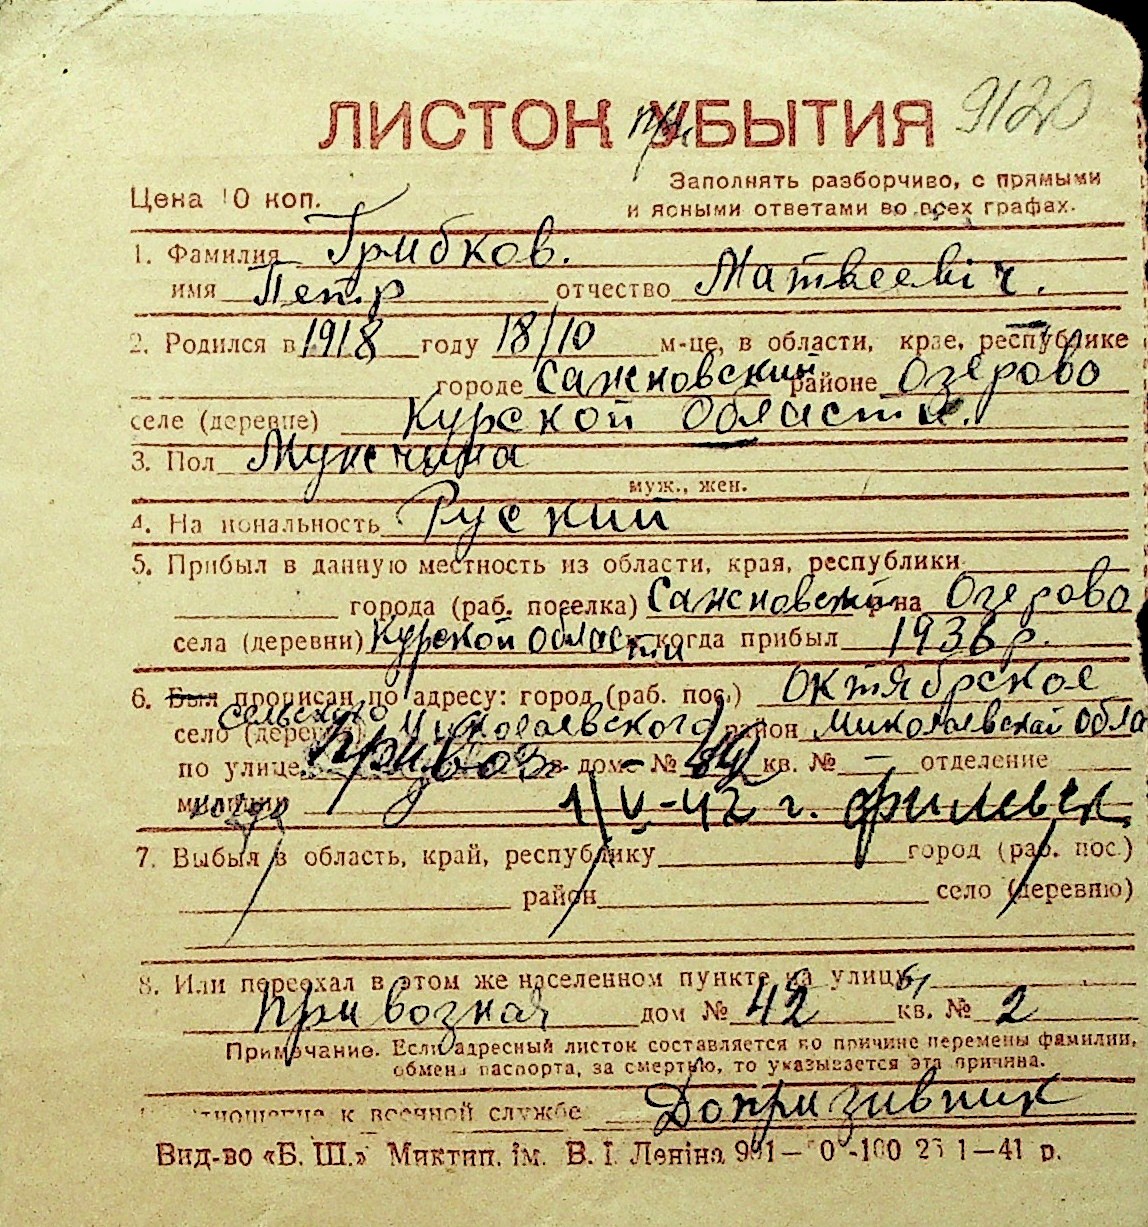 ЛИСТОК при УБЫТИЯ 9120
Цена 10 коп.
Заполнять разборчиво, с прямыми
и ясными ответами во всех графах.
1. Фамилия Грибков.
имя Петр отчество Матвеевіч.
2. Родился в 1918 году 18/10 м-це, в области, крае, республике
городе Сажновский районе Озерово
селе (деревне) Курской Области.
3. Пол Мужчина
муж., жен.
4. Национальность Руский
5. Прибыл в данную местность из области, края, республики
города (раб. поселка) Сажновский р-на Озерово
села (деревни) Курской области когда прибыл 1936 р.
6. Был прописан по адресу: город (раб. пос.) Октябрское
сельского
село (деревня) Николаевского район Николаевской обла
по улице Привоз в доме № кв. № – отделение
милиции 1/V-42 г.
7. Выбыл в область, край, республику город (раб. пос.)
район село (деревню)
8. Или переехал в этом же населенном пункте на улицу
Привозная дом № 42 кв. № 2
Примечание. Если адресный листок составляется по причине перемены фамилии,
обмена паспорта, за смертью, то указывается эта причина.
отношение к военной службе Допризивник
Вид-во «Б. Ш.» Миктип. ім. В. І. Леніна 1–41 р.